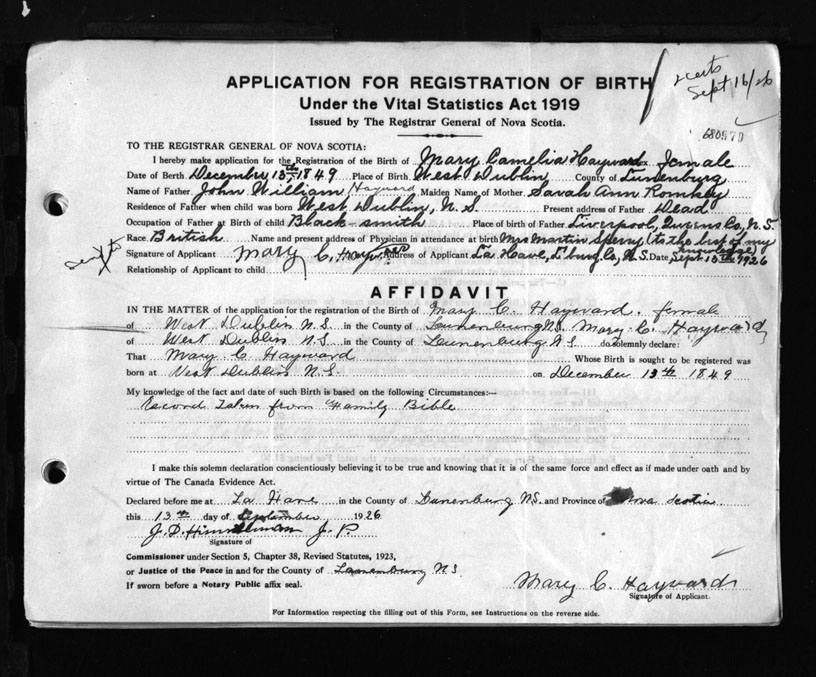 certs
Sept 16/26
APPLICATION FOR REGISTRATION OF BIRTH
Under the Vital Statistics Act 1919
Issued by The Registrar General of Nova Scotia.
TO THE REGISTRAR GENERAL OF NOVA SCOTIA:
I hereby make application for the Registration of the Birth of Mary Camelia Hayward sex female
Date of Berth December 13th 1849 Place of Birth West Dublin County of Lunenburg
Name of Father John William Hayward Maiden Name of Mother Sarah Ann Romkey
Residence of Father when child was born West Dublin, N. S. Present address of Father Dead
Occupation of Father at Birth of child Black smith Place of birth of Father Liverpool, Queens Co, N. S.
Race British Name and present address of Physician in attendance at birth Mrs Martin Sperry (to the best of my knowledge)
Signature of Applicant Mary C. Hayward Address of Applicant La Have, L'burg, Co, N. S. Date Sept 13th 1926
Relationship of Applicant to child
AFFIDAVIT
IN THE MATTER of the application for the registration of the Birth of Mary C. Hayward. female
of West Dublin N. S. in the County of Lunenburg N.S. Mary C. Hayward
of West Dublin N. S. in the County of Lunenburg N S do solemnly declare:
That Mary C. Hayward Whose Birth is sought to be registered was
born at West Dublin N. S. on December 13th 1849
My knowledge of the fact and date of such Birth is based on the following Circumstances:—
Record Taken from Family Bible
I make this solemn declaration conscientiously believing it to be true and knowing that it is of the same force and effect as if made under oath and by
virtue of The Canada Evidence Act.
Declared before me at La Have in the County of Lunenburg N.S. and Province of Nova Scotia
this 13th day of September 1926
J. D. J. P.
Signature of
Commissioner under Section 5, Chapter 38, Revised Statutes, 1923,
or Justice of the Peace in and for the County of Lunenburg N. S.
If sworn before a Notary Public affix seal.
Mary C. Hayward
Signature of Applicant.
For Information respecting the filling out of this Form, see Instructions on the reverse side.